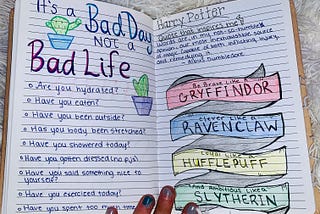 It's a Bad Day
NOT a
Bad Life
Are you hydrated?
Have you eaten?
Have you been outside?
Has you body been stretched?
Have you showered today?
Have you gotten dressed (no pj's)
Have you said something nice to
yourself?
Have you exercized today?
Have you spent too much time
Harry Potter
Quote that inspires me
Words are, in my not-so-humble
opinion, our most inexhaustible source
of magic. Capable of both inflicting injury,
and remedying it.
Albus Dumbledore
Be Brave Like a
GRYFFINDOR
Clever Like a
RAVENCLAW
Loyal Like a
HUFFLEPUFF
And Ambitious Like a
SLYTHERIN